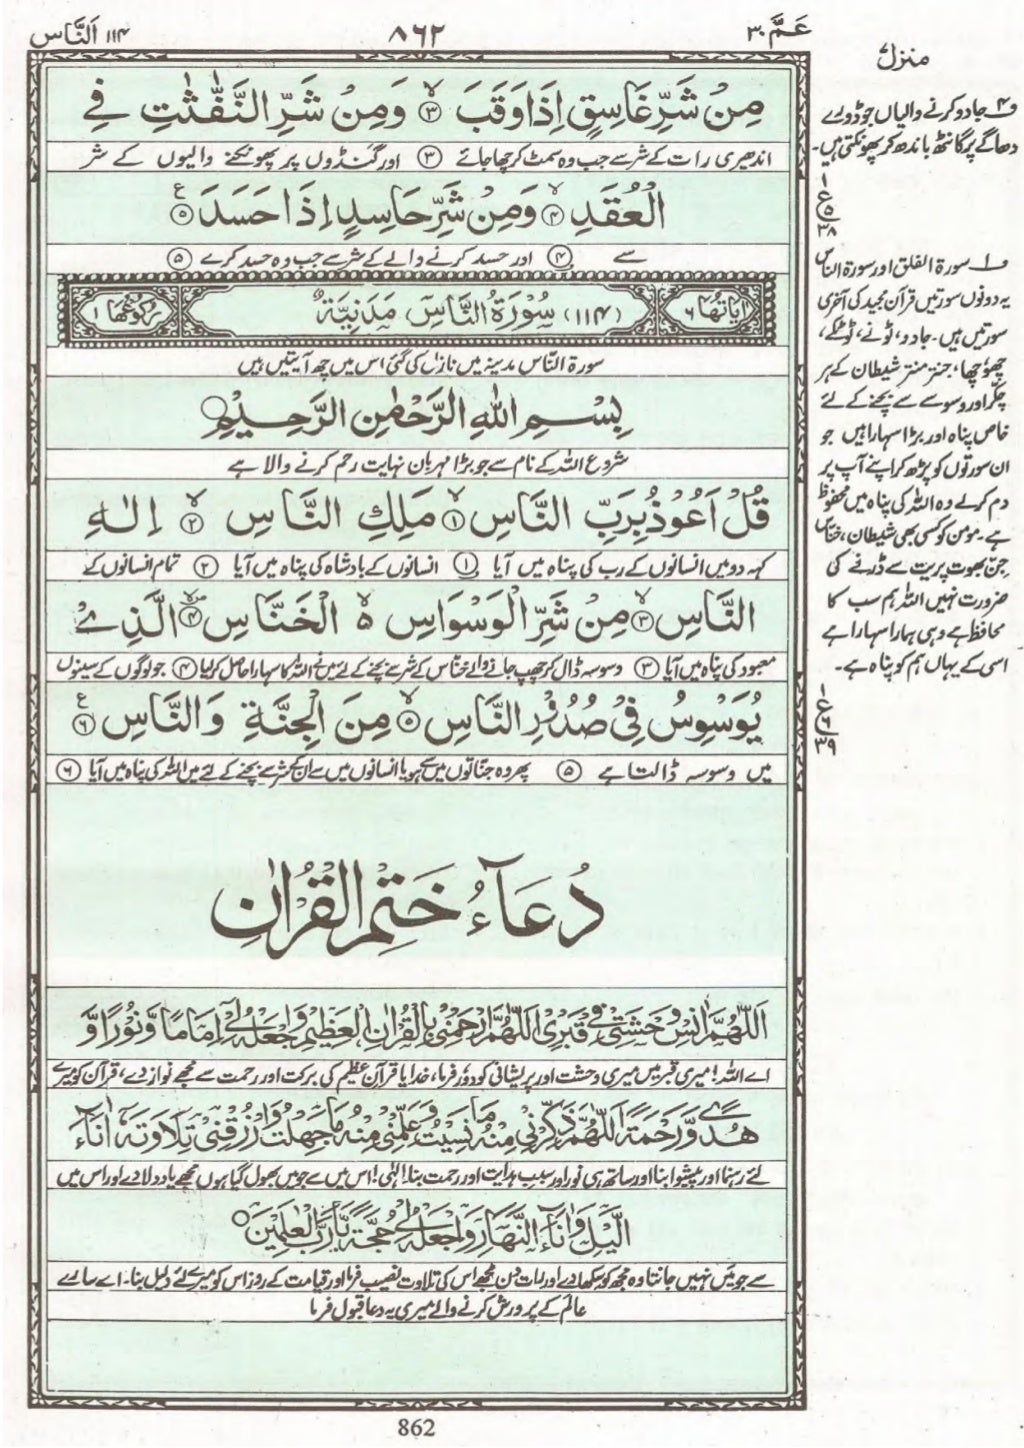 عَمَّ ٣٠
٨٦٢
١١٤ اَلنَّاس
منزل
مِنْ شَرِّ غَاسِقٍ اِذَا وَقَبَ ۙ﴿۳﴾ وَمِنْ شَرِّ النَّفّٰثٰتِ فِی
اندھیری رات کے شر سے جب وہ سمٹ کر چھا جائے ﴿۳﴾ اور گنڈوں پر پھونکنے والیوں کے شر
الْعُقَدِ ۙ﴿۴﴾ وَمِنْ شَرِّ حَاسِدٍ اِذَا حَسَدَ ﴿۵﴾ ع
سے ﴿۴﴾ اور حسد کرنے والے کے شر سے جب وہ حسد کرے ﴿۵﴾
اٰیَاتُهَا ٦ (١١٤) سُوْرَةُ النَّاسِ مَدَنِیَّةٌ رُكُوْعُهَا ١
سورۃ النّاس مدینہ میں نازل کی گئی اس میں چھ آیتیں ہیں
بِسْمِ اللّٰهِ الرَّحْمٰنِ الرَّحِیْمِ
شروع اللہ کے نام سے جو بڑا مہربان نہایت رحم کرنے والا ہے
قُلْ اَعُوْذُ بِرَبِّ النَّاسِ ۙ﴿۱﴾ مَلِكِ النَّاسِ ۙ﴿۲﴾ اِلٰهِ
کہہ دو میں انسانوں کے رب کی پناہ میں آیا ﴿۱﴾ انسانوں کے بادشاہ کی پناہ میں آیا ﴿۲﴾ تمام انسانوں کے
النَّاسِ ۙ﴿۳﴾ مِنْ شَرِّ الْوَسْوَاسِ ۵ الْخَنَّاسِ ﴿۴﴾ الَّذِیْ
معبود کی پناہ میں آیا ﴿۳﴾ وسوسہ ڈال کر چھپ جانے والے خنّاس کے شر سے بچنے کے لئے میں نے اللہ کا سہارا حاصل کر لیا ﴿۴﴾ جو لوگوں کے سینوں
یُوَسْوِسُ فِیْ صُدُوْرِ النَّاسِ ۙ﴿۵﴾ مِنَ الْجِنَّةِ وَالنَّاسِ ﴿۶﴾ ع
میں وسوسہ ڈالتا ہے ﴿۵﴾ پھر وہ جنّاتوں میں سے ہو یا انسانوں میں سے ان کے شر سے بچنے کے لئے میں اللہ کی پناہ میں آیا ﴿۶﴾
دُعَآءُ خَتْمِ الْقُرْاٰنِ
اَللّٰهُمَّ اٰنِسْ وَحْشَتِیْ فِیْ قَبْرِیْ اَللّٰهُمَّ ارْحَمْنِیْ بِالْقُرْاٰنِ الْعَظِیْمِ وَاجْعَلْهُ لِیْ اِمَامًا وَّنُوْرًا وَّ
اے اللہ! میری قبر میں میری وحشت اور پریشانی کو دور فرما، خدایا قرآن عظیم کی برکت اور رحمت سے مجھے نواز دے، قرآن کو میرے
هُدًی وَّرَحْمَةً اَللّٰهُمَّ ذَكِّرْنِیْ مِنْهُ مَا نَسِیْتُ وَعَلِّمْنِیْ مِنْهُ مَا جَهِلْتُ وَارْزُقْنِیْ تِلَاوَتَهٗ اٰنَآءَ
لئے رہنما اور پیشوا بنا اور ساتھ ہی نور اور سبب ہدایت اور رحمت بنا۔ الٰہی! اس میں سے جو میں بھول گیا ہوں مجھے یاد دلا دے اور اس میں
الَّیْلِ وَاٰنَآءَ النَّهَارِ وَاجْعَلْهُ لِیْ حُجَّةً یَّارَبَّ الْعٰلَمِیْنَ
سے جو میں نہیں جانتا وہ مجھ کو سکھا دے اور رات دن مجھے اس کی تلاوت نصیب فرما اور قیامت کے روز اس کو میرے لئے دلیل بنا۔ اے سارے
عالَم کے پرورش کرنے والے میری یہ دعا قبول فرما
ف۴ جادو کرنے والیاں جو ڈورے
دھاگے پر گانٹھ باندھ کر پھونکتی ہیں۔
١
ع
٥
٣٨
ف۱ سورۃ الفلق اور سورۃ الناس
یہ دونوں سورتیں قرآن مجید کی آخری
سورتیں ہیں۔ جادو، ٹونے، ٹوٹکے،
چھوچھا، جنتر منتر شیطان کے ہر
چکّر اور وسوسے سے بچنے کے لئے
خاص پناہ اور بڑا سہارا ہیں جو
ان سورتوں کو پڑھ کر اپنے آپ پر
دم کرلے وہ اللہ کی پناہ میں محفوظ
ہے۔ مومن کو کسی بھی شیطان، خنّاس
جِن بھوت پریت سے ڈرنے کی
ضرورت نہیں اللہ ہم سب کا
محافظ ہے وہی ہمارا سہارا ہے
اسی کے یہاں ہم کو پناہ ہے۔
١
ع
٦
٣٩
862